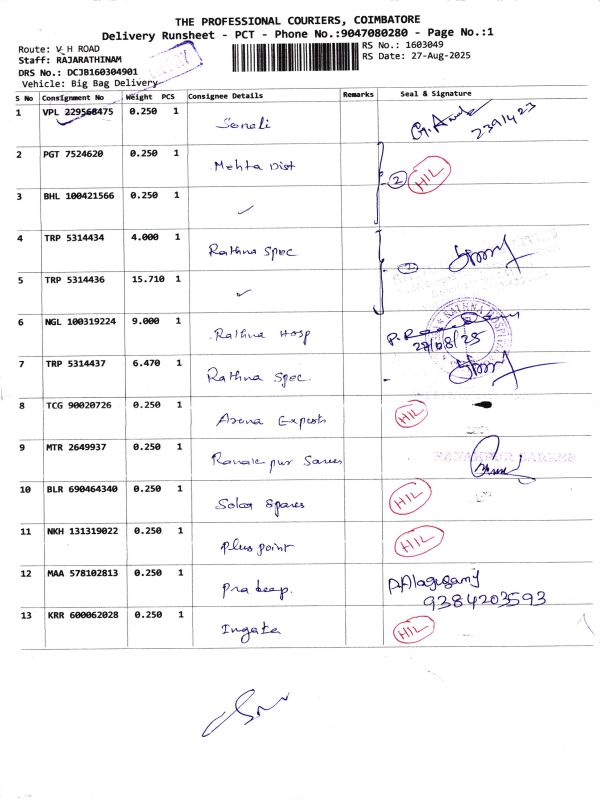 THE PROFESSIONAL COURIERS, COIMBATORE
Delivery Runsheet - PCT - Phone No.:9047080280 - Page No.:1
Route: V H ROAD
RS No.: 1603049
Staff: RAJARATHINAM
RS Date: 27-Aug-2025
DRS No.: DCJB160304901
Vehicle: Big Bag Delivery
S No Consignment No Weight PCS Consignee Details Remarks Seal & Signature
1 VPL 229568475 0.250 1 Sonali 2391423
2 PGT 7524620 0.250 1 Mehta Dist 2 HIL
3 BHL 100421566 0.250 1 ✓
4 TRP 5314434 4.000 1 Rathna Spec 2
5 TRP 5314436 15.710 1 ✓
6 NGL 100319224 9.000 1 Rathna Hosp 27/08/25
7 TRP 5314437 6.470 1 Rathna Spec.
8 TCG 90020726 0.250 1 Arena Exports HIL
9 MTR 2649937 0.250 1 Ranakpur Sarees RANAKPUR SAREES
10 BLR 690464340 0.250 1 Solar Spares HIL
11 NKH 131319022 0.250 1 Plus point HIL
12 MAA 578102813 0.250 1 Pradeep. P.Alagusamy
9384203593
13 KRR 600062028 0.250 1 Ingate HIL